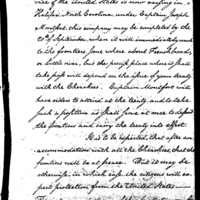 vice of the United States is now waiting in
Halifax North Carolina under Captain Joseph
Montfort, this company may be completed by the
when it will immediately
to the frontiers, some where about French broad,
or little river, but the precise place where it shall
take post will depend on the issue of your treaty
with the Cherokees. Captain Montfort will
have orders to attend the treaty, and to take
such a position as shall at once to defend
the frontiers and carry the treaty into effect.
It is to be expected, that after an
accommodation with all the Cherokees, that the
frontiers will be at peace. But it may be
otherwise, in which case the citizens will ex
pect protection from the United States